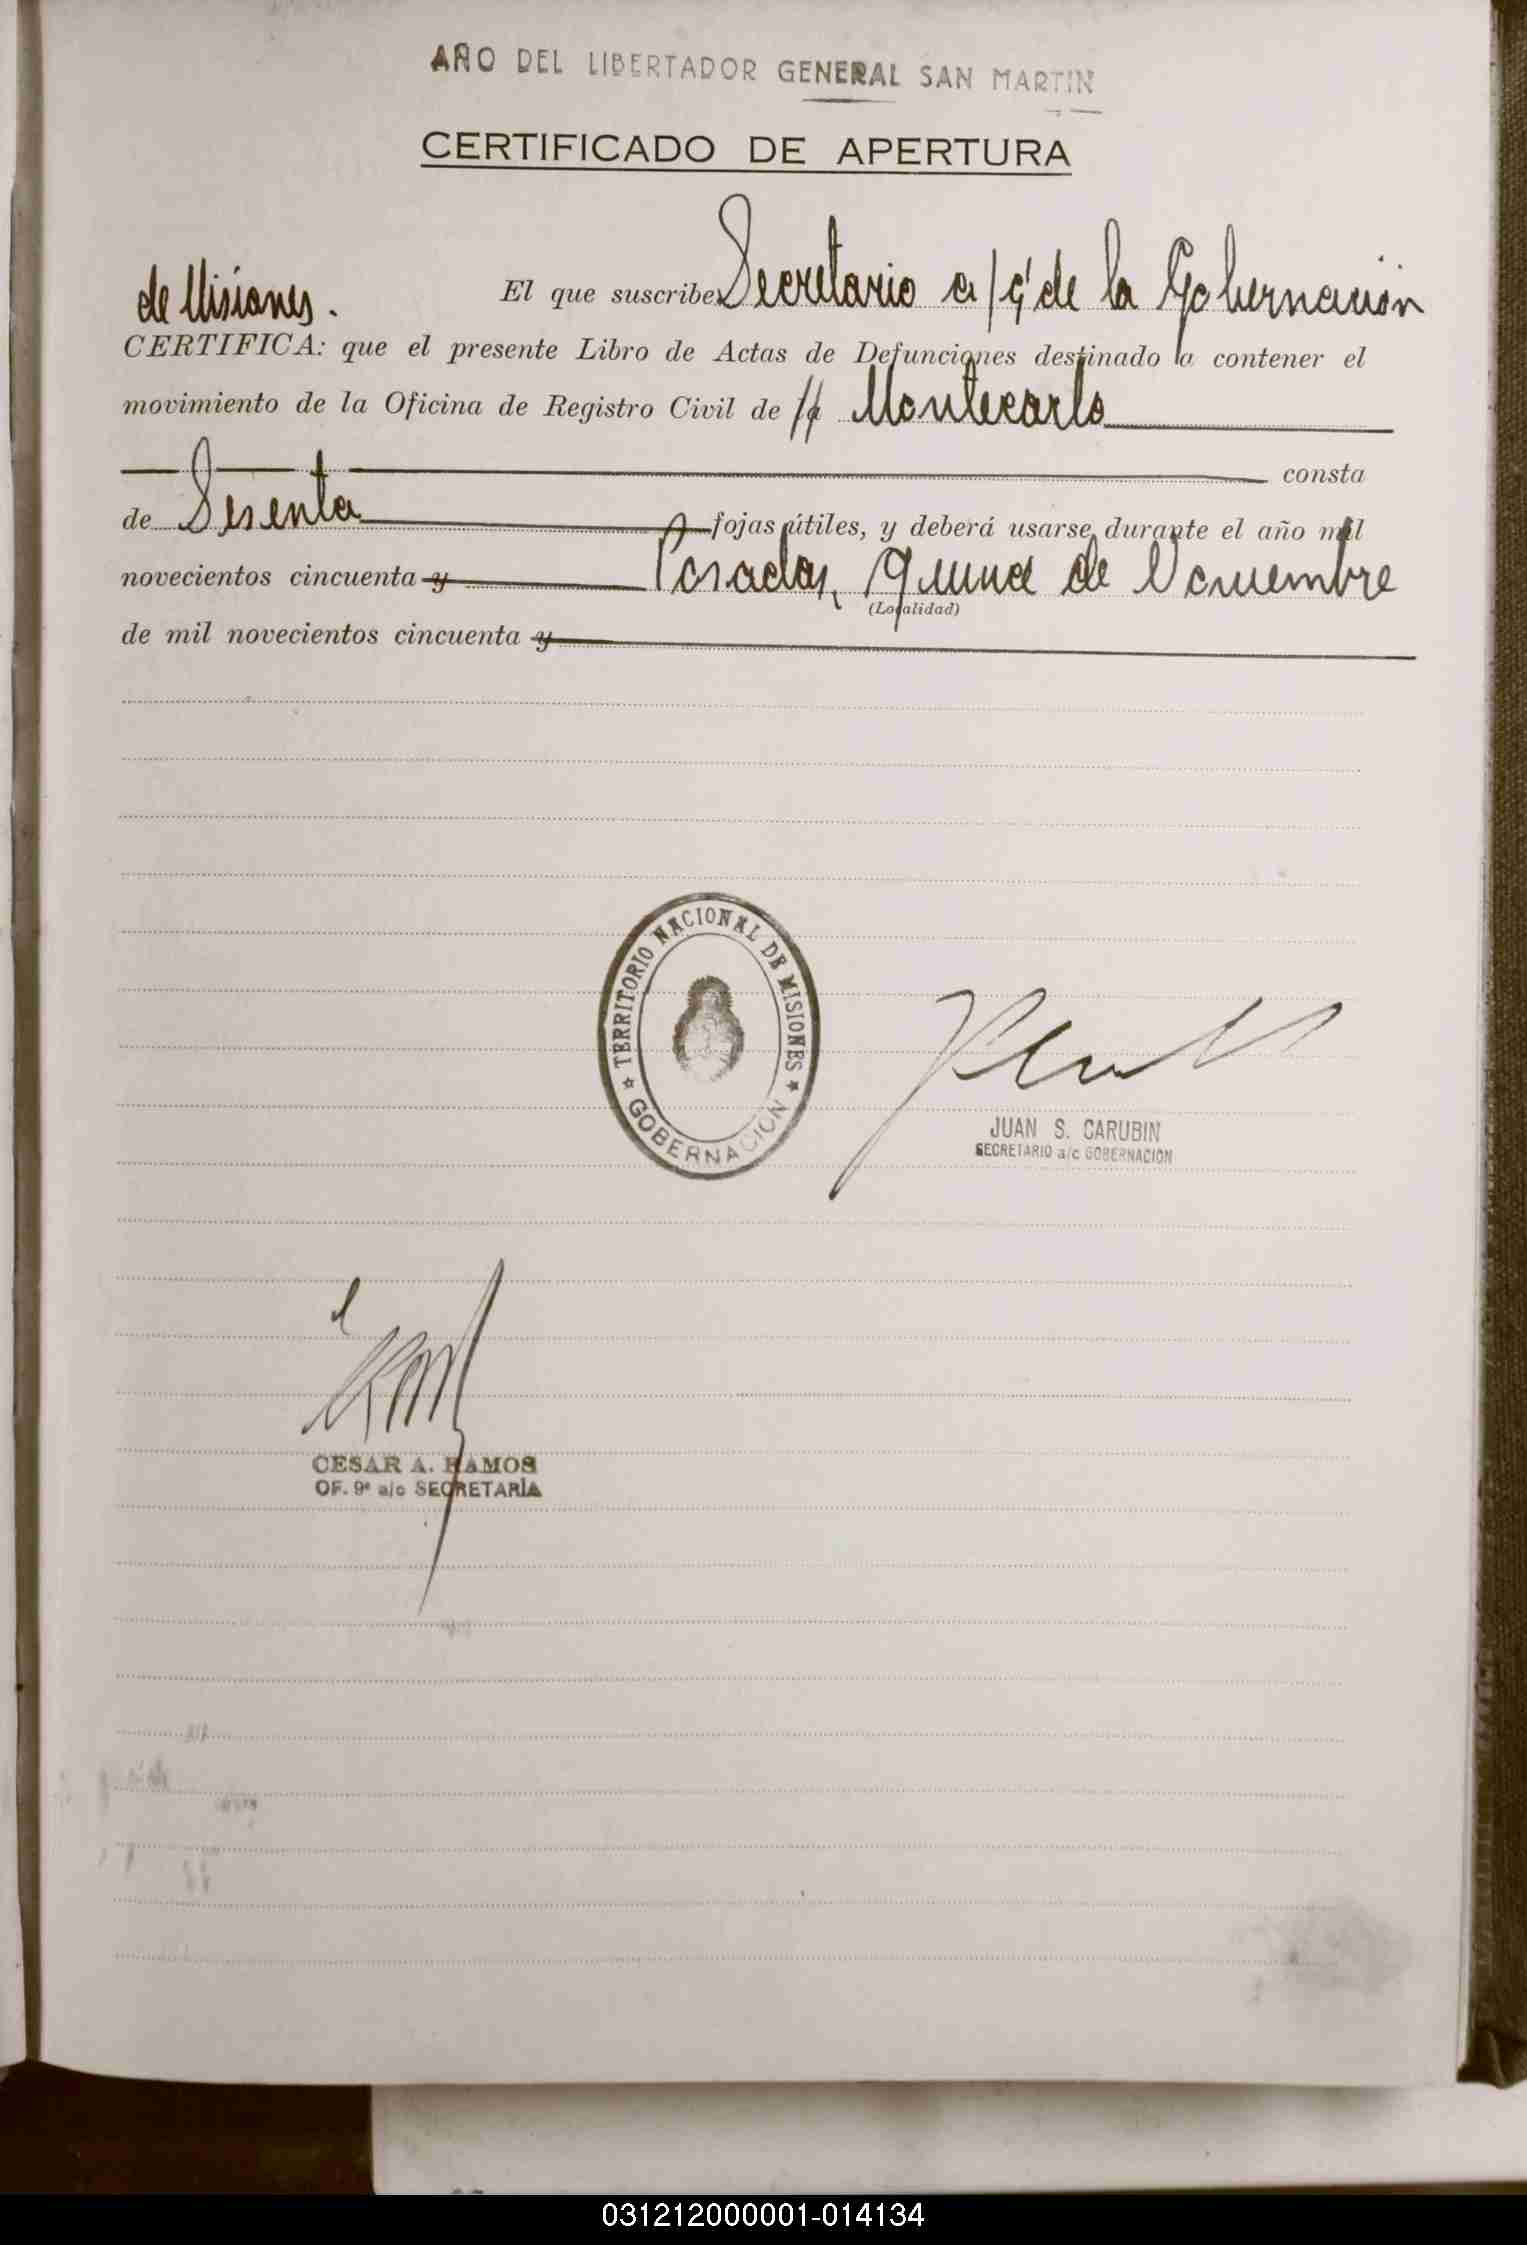 AÑO DEL LIBERTADOR GENERAL SAN MARTIN
CERTIFICADO DE APERTURA
El que suscribe, Secretario a/c de la Gobernación
de Misiones.
CERTIFICA: que el presente Libro de Actas de Defunciones destinado a contener el
movimiento de la Oficina de Registro Civil de // Montecarlo
consta
de Sesenta fojas útiles, y deberá usarse durante el año mil
novecientos cincuenta y Posadas, quince de Noviembre
(Localidad)
de mil novecientos cincuenta y
TERRITORIO NACIONAL DE MISIONES
GOBERNACION
JUAN S. CARUBIN
SECRETARIO a/c GOBERNACION
CESAR A. RAMOS
OF. 9º a/c SECRETARÍA
031212000001-014134